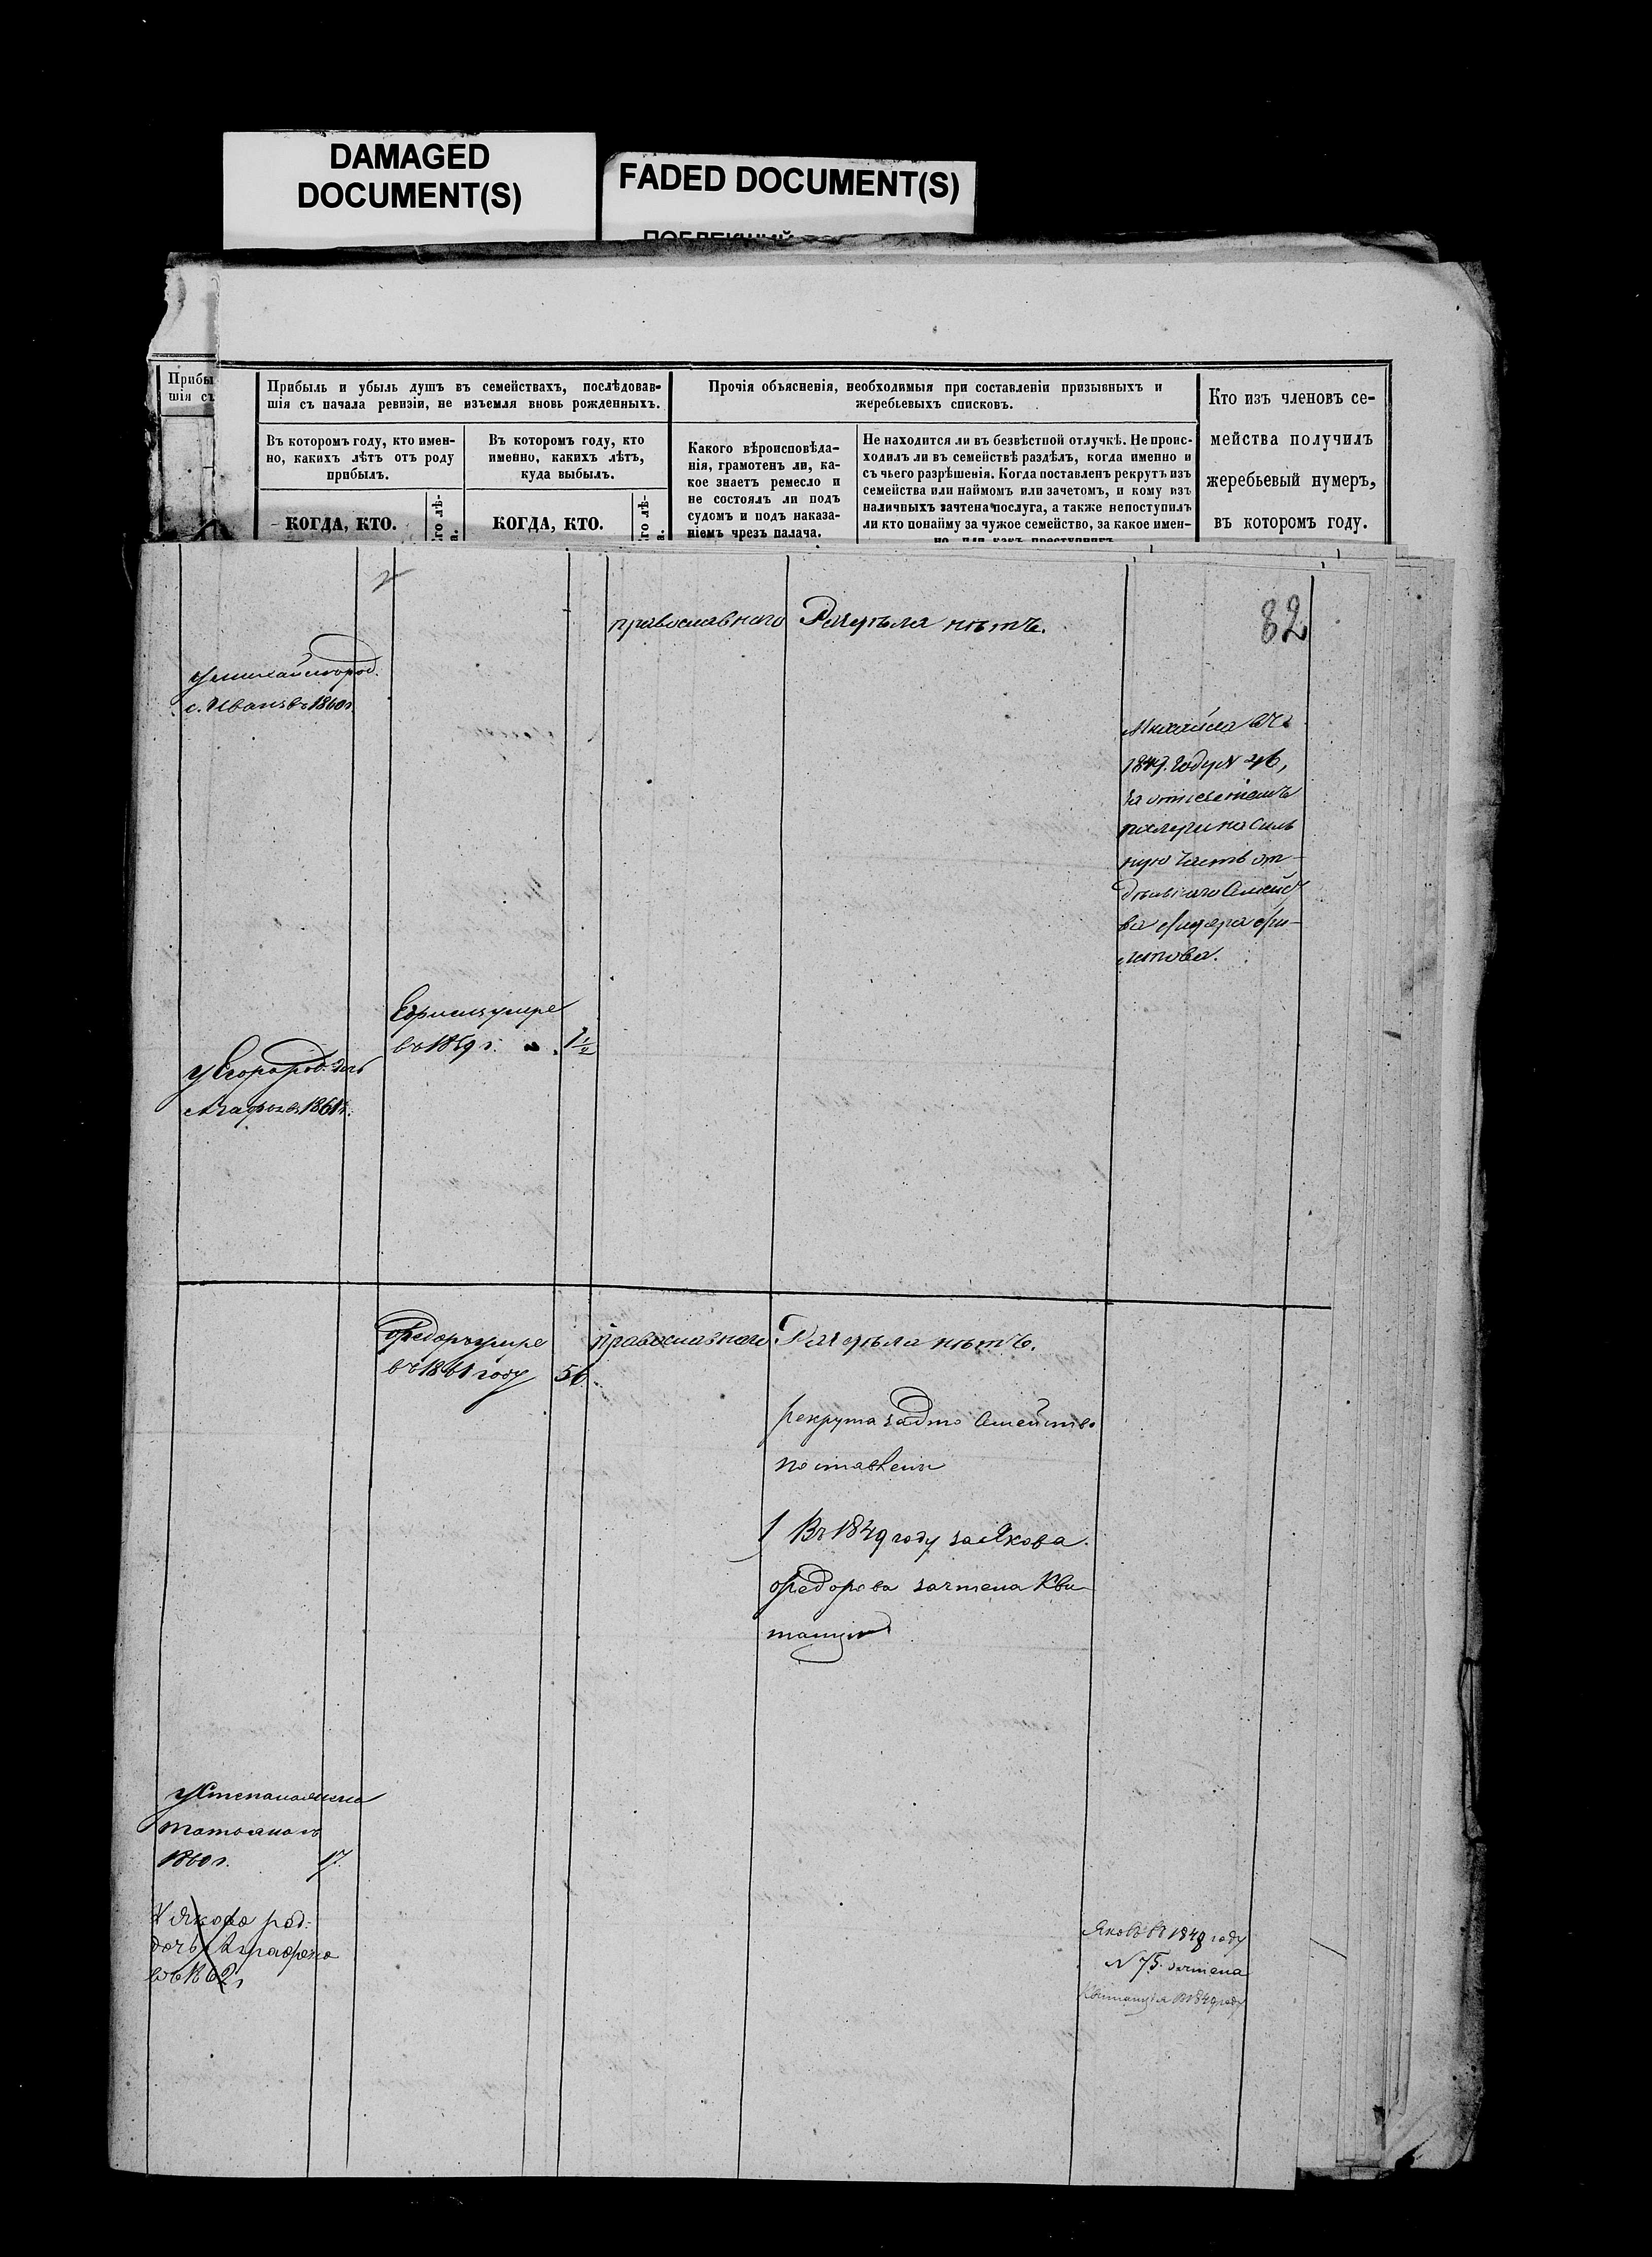 DAMAGED
DOCUMENT(S)
FADED DOCUMENT(S)
Прибы
шія съ
Прибыль и убыль душъ въ семействахъ, послѣдовав-
шія съ начала ревизіи, не изъемля вновь рожденныхъ.
Въ которомъ году, кто имен-
но, какихъ лѣтъ отъ роду
прибылъ.
КОГДА, КТО.
Въ которомъ году, кто
именно, какихъ лѣтъ,
куда выбылъ.
КОГДА, КТО.
Прочія объясненія, необходимыя при составленіи призывныхъ и
жеребьевыхъ списковъ.
Какого вѣроисповѣда-
нія, грамотенъ ли, ка-
кое знаетъ ремесло и
не состоялъ ли подъ
судомъ и подъ наказа-
ніемъ чрезъ палача.
Не находится ли въ безвѣстной отлучкѣ. Не проис-
ходилъ ли въ семействѣ раздѣлъ, когда именно и
съ чьего разрѣшенія. Когда поставленъ рекрутъ изъ
семейства или наймомъ или зачетомъ, и кому изъ
наличныхъ зачтена послуга, а также непоступилъ
ли кто понайму за чужое семейство, за какое имен-
но, или какъ преступникъ
Кто изъ членовъ се-
мейства получилъ
жеребьевый нумеръ,
въ которомъ году.
82
православнаго
Раздѣла нѣтъ.
у Михайлы род.
с. Иванъ въ 1860 г.
Михайла въ
1849. году N 46,
ную часть от-
ва Федора Фи-
липова.
умре
въ 1859 г. 1½
у Егора род. дочь
1861 г.
Федоръ умре
въ 1861 году 56.
православнаго
Раздѣла нѣтъ.
рекрута за это Семейство
поставлены
1 Въ 1849 году за Якова
Федорова зачтена Кви
танція
у Степана жена
Татьяна въ
1860 г. 17.
У Якова род.
дочь Аграфена
въ 1862 г.
Яковъ въ 1849 году
N 75. зачтена
Квитанція въ 1849 году